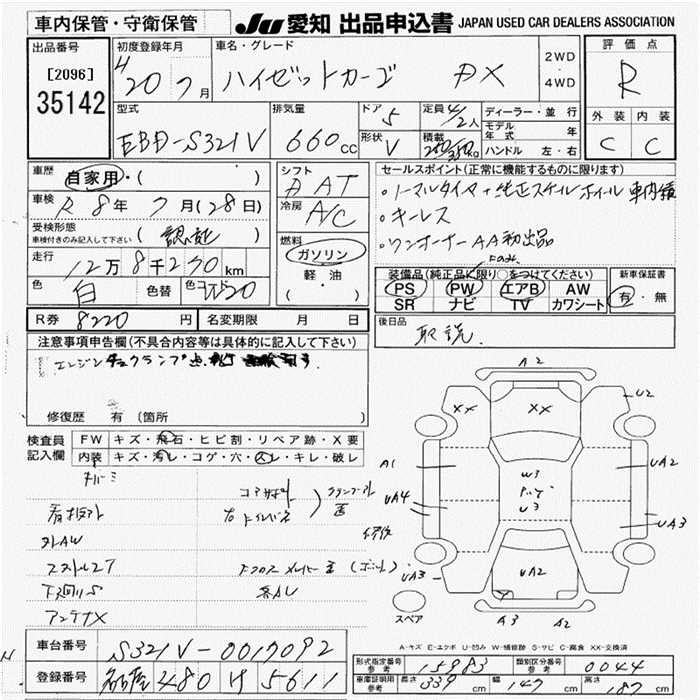 車内保管・守衛保管
JU 愛知 出品申込書 JAPAN USED CAR DEALERS ASSOCIATION
出品番号
[2096]
35142
初度登録年月
20 7月
車名・グレード
ハイゼットカーゴ DX
2WD
・
4WD
評価点
R
外装 内装
C C
型式
EBD-S321V
排気量
660cc
ドア 5
形状 V
定員 4/2人
積載 250/350kg
ディーラー・並行
モデル年式 年
ハンドル 左・右
車歴
自家用・( )
車検
R8年 7月(28日)
受検形態
車検付きのみ記入して下さい
走行
12万8千270km
色
白
色替
色コード W20
シフト
DAT
冷房
A/C
燃料
ガソリン
・
軽・油
( )
セールスポイント(正常に機能するものに限ります)
・ノーマルタイヤ+純正スチールホイール 車内積
・キーレス
・ワンオーナーAA初出品
装備品(純正品に限り○をつけてください)
PS PW エアB AW
SR ナビ TV カワシート
新車保証書
有・無
後日品
取説
R券 8220円
名変期限 月 日
注意事項申告欄(不具合内容等は具体的に記入して下さい)
エンジンチェックランプ点灯
修復歴 有(箇所
検査員
記入欄
FW キズ・飛石・ヒビ割・リペア跡・X要
内装 キズ・汚レ・コゲ・穴・スレ・キレ・破レ
看板跡
コアサポート
下回りS
アンテナX
A2
XX
XX
U2
A1
UA2
W3
U3
UA4
UA3
UA3
UA2
Y
A3
A2
スペア
A-キズ E-エクボ U-凹み W-補修跡 S-サビ C-腐食 XX-交換済
車台番号 S321V-0017092
登録番号 名古屋 480 け 5611
型式指定番号 参考 15983
類別区分番号 参考 0044
車庫証明用 参考 長さ 339cm 幅 147cm 高さ 187cm